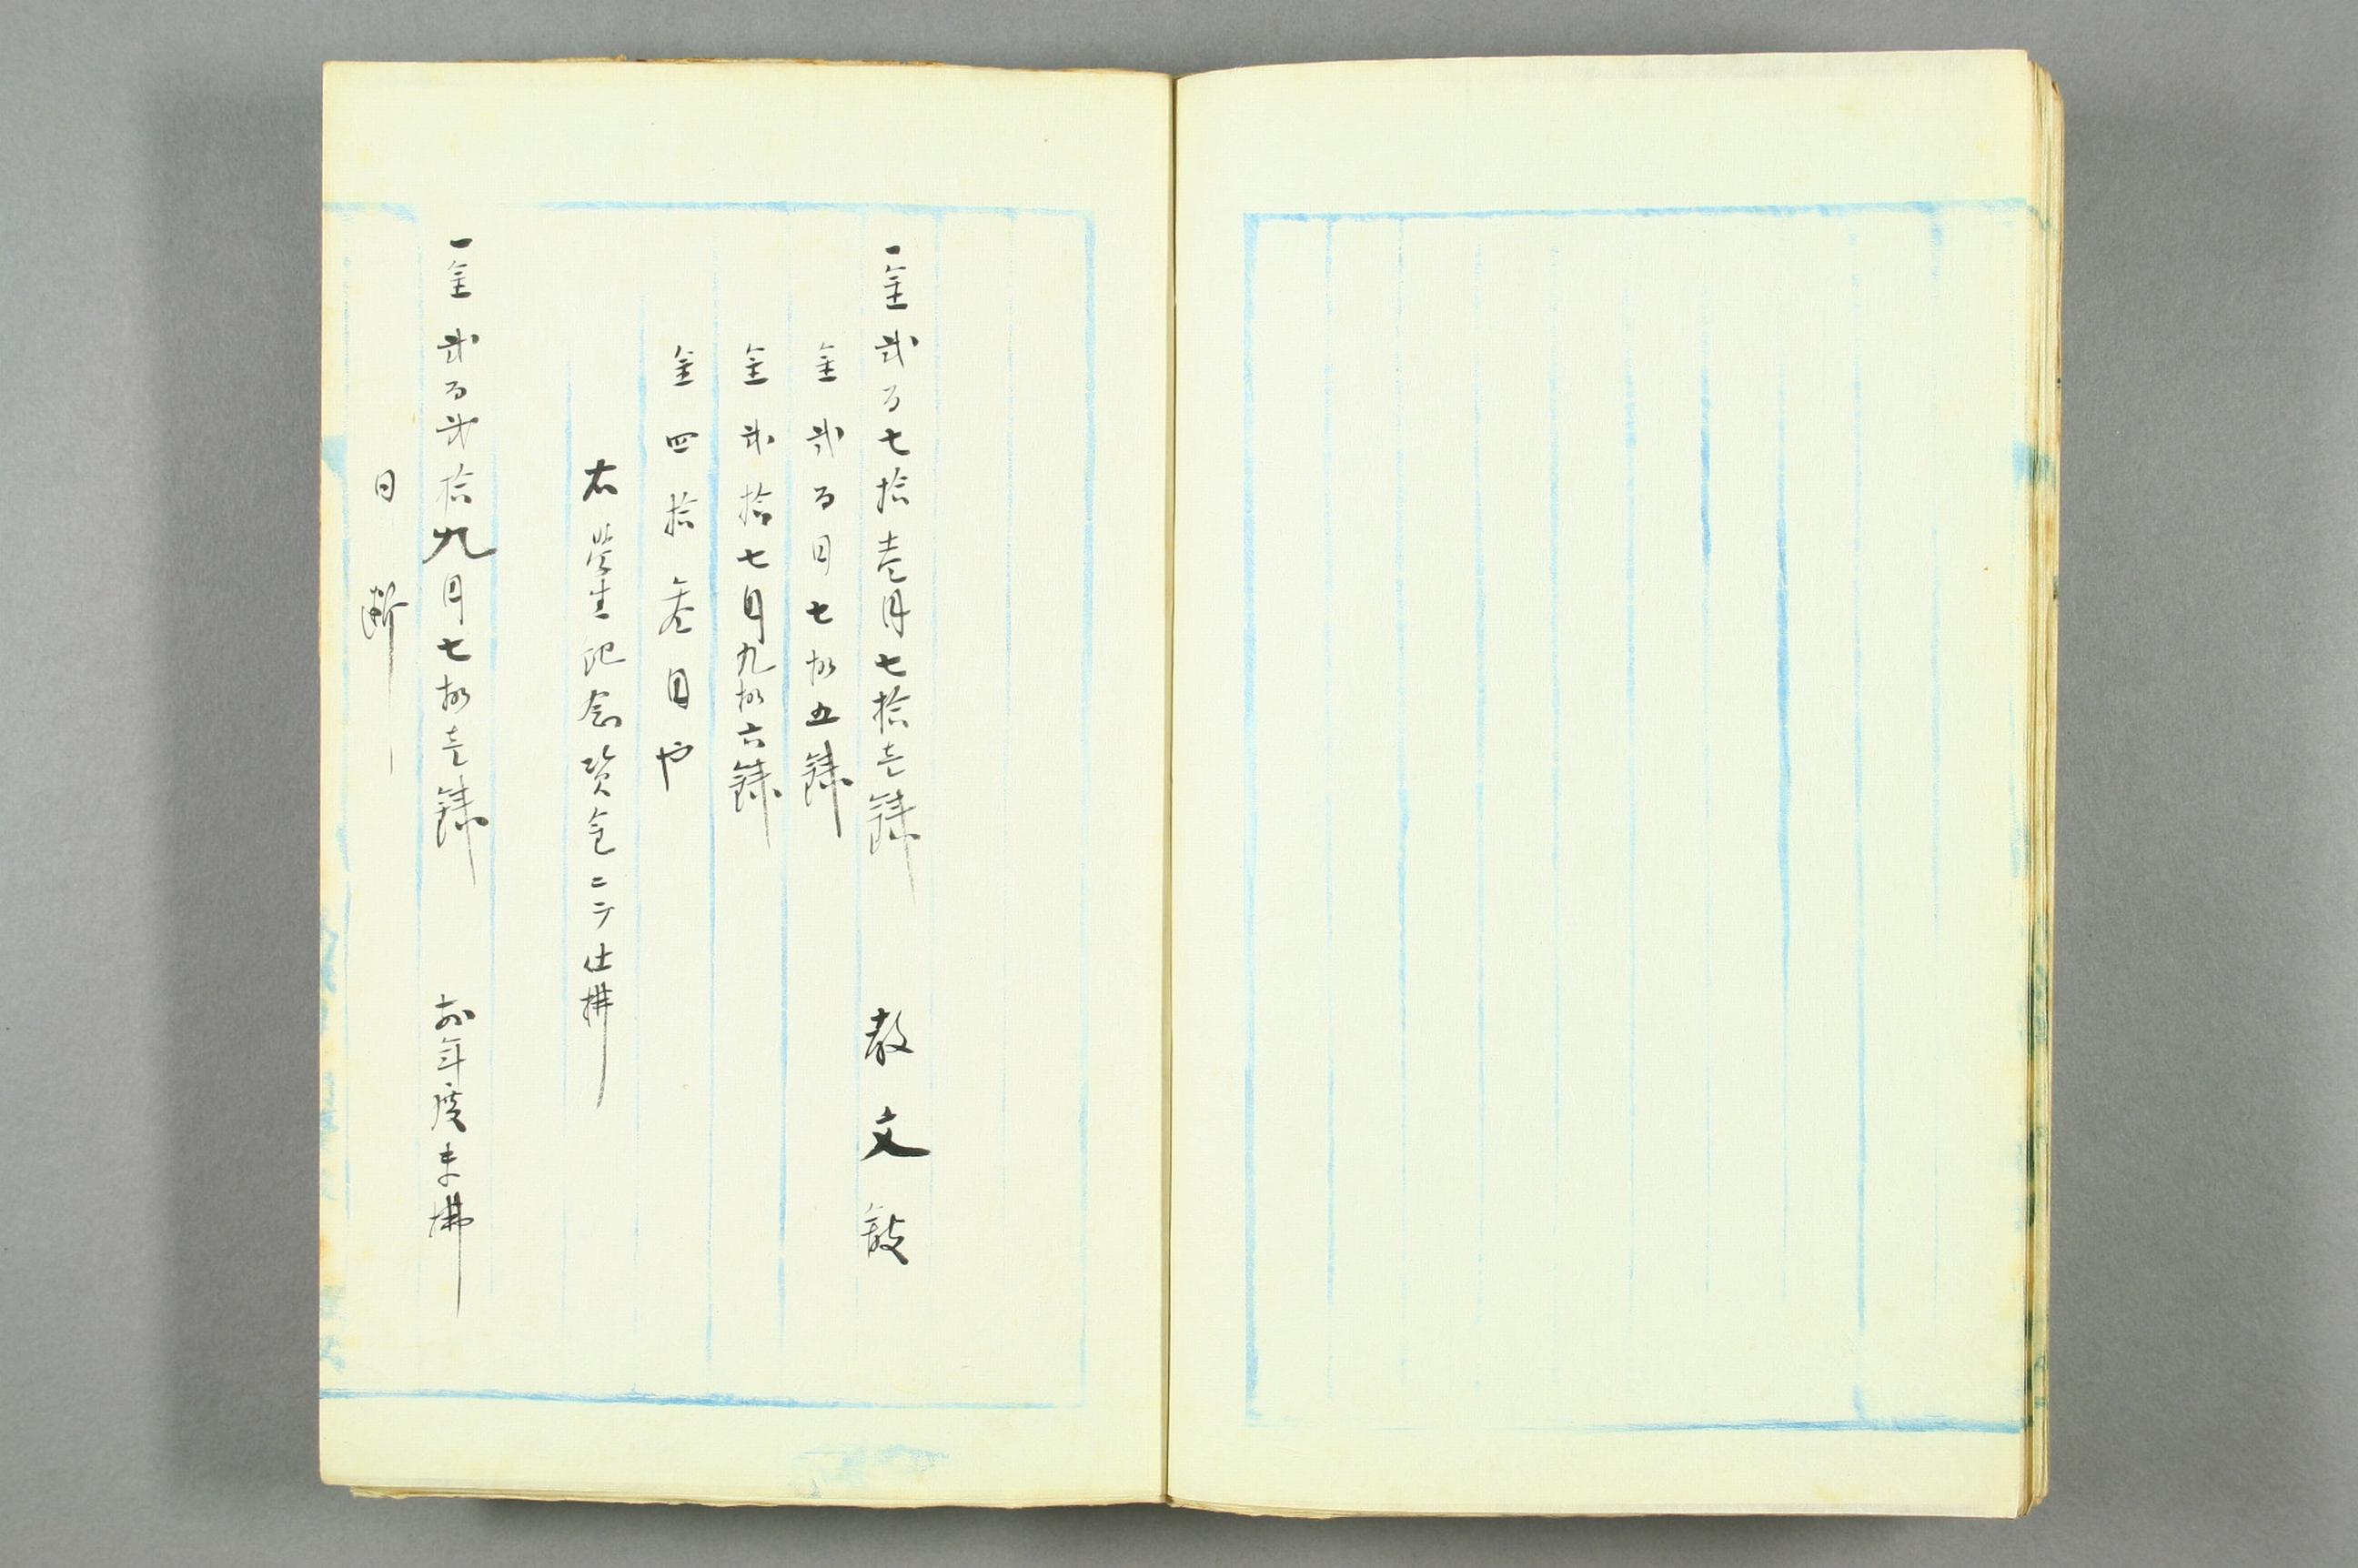 一金弐百七拾壱円七拾壱銭 教文館
金弐百円七拾五銭
金弐拾七円九拾六銭
金四拾参円也
右学生記念資金ニテ仕拂
一金弐百弐拾九円七拾壱銭 前年度未拂
同断